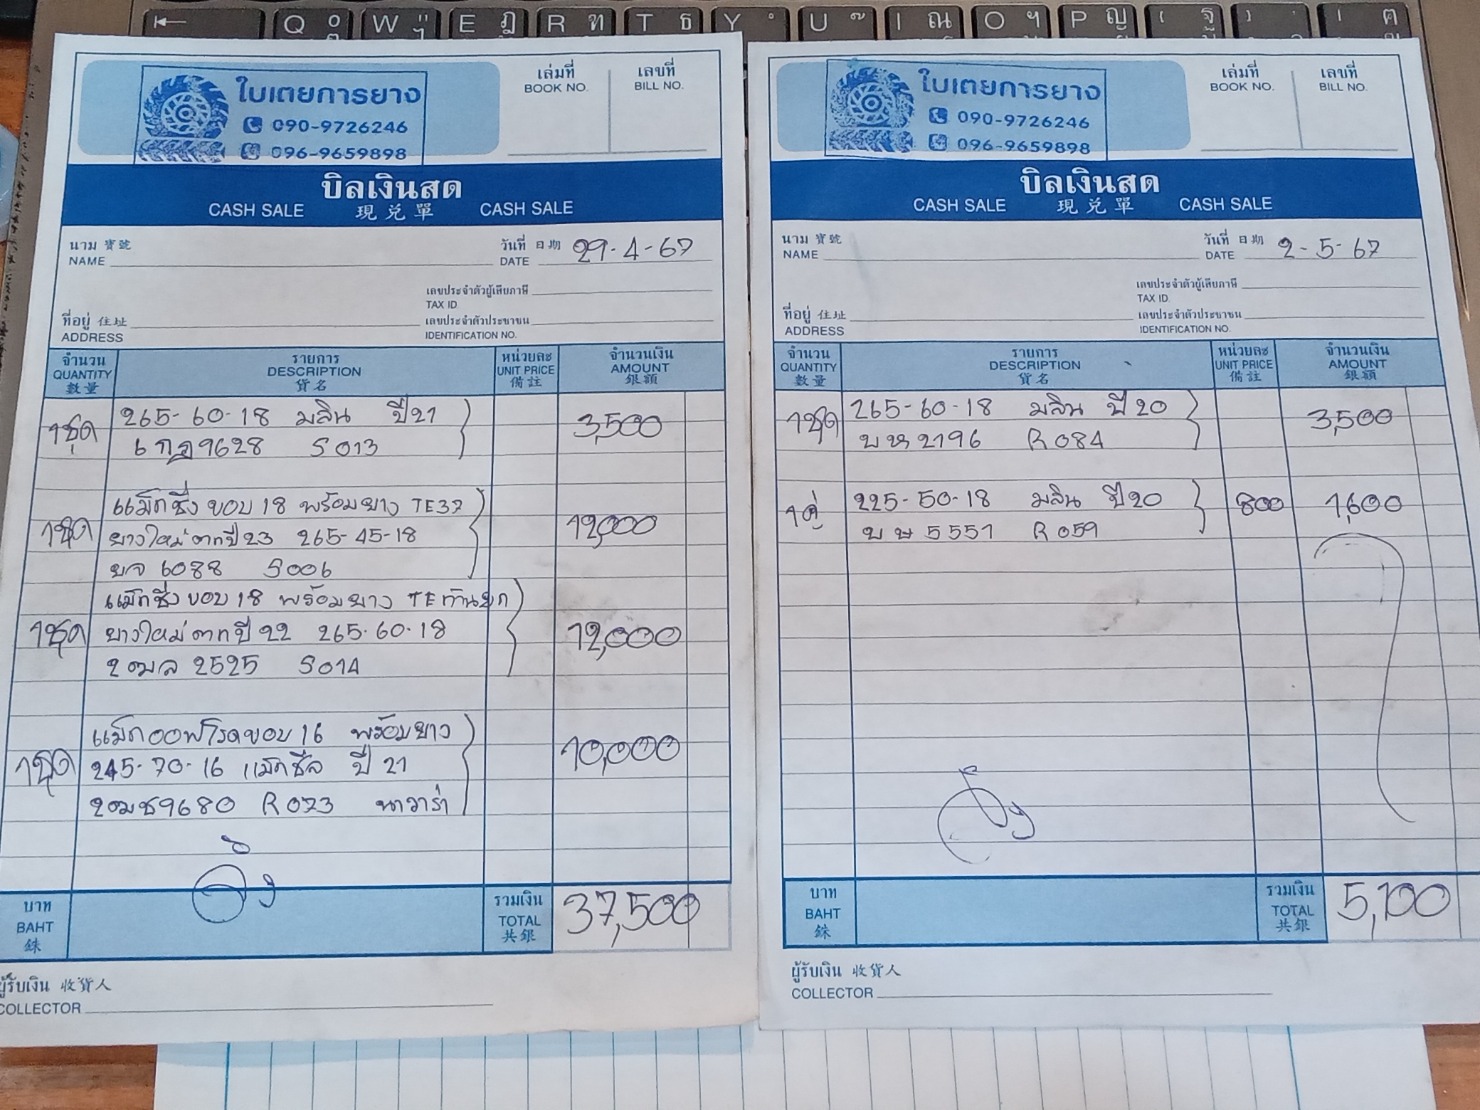 Q W E R T Y U I O P
ใบเตยการยาง
090-9726246
096-9659898
เล่มที่
BOOK NO.
เลขที่
BILL NO.
บิลเงินสด
CASH SALE 現兌單 CASH SALE
นาม 寶號
NAME
วันที่ 日期
DATE
29-4-67
เลขประจำตัวผู้เสียภาษี
TAX ID
ที่อยู่ 住址
ADDRESS
เลขประจำตัวประชาชน
IDENTIFICATION NO.
จำนวน รายการ หน่วยละ จำนวนเงิน
QUANTITY DESCRIPTION UNIT PRICE AMOUNT
數量 貨名 備註 銀額
1ชุด 265-60-18 มลิน ปี21 3,500
6 กฎ 9628 S013
แม็กซิ่ง ขอบ 18 พร้อมยาง TE37
1ชุด ยางใหม่ ตกปี 23 265-45-18 12,000
ยจ 6088 S006
แม็กซิ่ง ขอบ 18 พร้อมยาง TE
1ชุด ยางใหม่ ตกปี 22 265-60-18 12,000
2ฒล 2525 S014
แม็กออฟโรดขอบ 16 พร้อมยาง
1ชุด 245-70-16 แม็กซีส ปี 21 10,000
2ฒช9680 R073 นาวาร่า
บาท รวมเงิน
BAHT TOTAL 37,500
銖 共銀
ผู้รับเงิน 收貨人
COLLECTOR
ใบเตยการยาง
090-9726246
096-9659898
เล่มที่
BOOK NO.
เลขที่
BILL NO.
บิลเงินสด
CASH SALE 現兌單 CASH SALE
นาม 寶號
NAME
วันที่ 日期
DATE
2-5-67
เลขประจำตัวผู้เสียภาษี
TAX ID
ที่อยู่ 住址
ADDRESS
เลขประจำตัวประชาชน
IDENTIFICATION NO.
จำนวน รายการ หน่วยละ จำนวนเงิน
QUANTITY DESCRIPTION UNIT PRICE AMOUNT
數量 貨名 備註 銀額
1ชุด 265-60-18 มลิน ปี 20 3,500
บห 2196 R084
1คู่ 225-50-18 มลิน ปี20 800 1,600
บษ 5551 R059
บาท รวมเงิน
BAHT TOTAL 5,100
銖 共銀
ผู้รับเงิน 收貨人
COLLECTOR